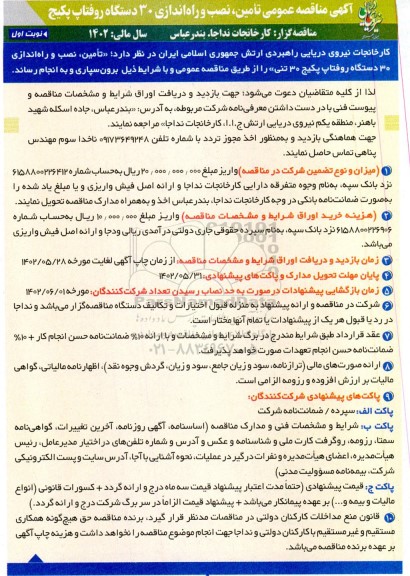 آگهی مناقصه عمومی تأمین، نصب و راه‌اندازی ۳۰ دستگاه روفتاپ پکیج
مناقصه‌گزار: کارخانجات نداجا، بندرعباس سال مالی: ۱۴۰۲
نوبت اول
کارخانجات نیروی دریایی راهبردی ارتش جمهوری اسلامی ایران در نظر دارد: «تأمین، نصب و راه‌اندازی
۳۰ دستگاه روفتاپ پکیج ۳۰ تنی» را از طریق مناقصه عمومی و با شرایط ذیل برون‌سپاری و به انجام رساند.
لذا از کلیه متقاضیان دعوت می‌شود؛ جهت بازدید و دریافت اوراق شرایط و مشخصات مناقصه و
پیوست فنی با در دست داشتن معرفی‌نامه شرکت مربوطه، به آدرس: «بندرعباس، جاده اسکله شهید
باهنر، منطقه یکم نیروی دریایی ارتش ج.ا.ا، کارخانجات نداجا» مراجعه نمایند.
جهت هماهنگی بازدید و به‌منظور اخذ مجوز تردد با شماره تلفن ۰۹۱۷۳۶۴۹۲۴۸ ناخدا سوم مهندس
پناهی تماس حاصل نمایند.
۱ (میزان و نوع تضمین شرکت در مناقصه) واریز مبلغ ۲۰٫۰۰۰٫۰۰۰٫۰۰۰ ریال به حساب شماره
نزد بانک سپه، به‌نام وجوه متفرقه دارایی کارخانجات نداجا و ارائه اصل فیش واریزی و یا مبلغ یاد شده را
به‌صورت ضمانت‌نامه بانکی در وجه کارخانجات نداجا، بندرعباس اخذ و به‌همراه مدارک مناقصه تحویل نمایند.
۲ (هزینه خرید اوراق شرایط و مشخصات مناقصه) واریز مبلغ ۱۰٫۰۰۰٫۰۰۰ ریال به‌حساب شماره
نزد بانک سپه، به‌نام سپرده حقوقی جاری دولتی درآمدی ریالی ودجا و ارائه اصل فیش واریزی
می‌باشد.
۳ زمان بازدید و دریافت اوراق شرایط و مشخصات مناقصه: از زمان چاپ آگهی لغایت مورخه ۱۴۰۲/۰۵/۲۸
۴ پایان مهلت تحویل مدارک و پاکت‌های پیشنهادی: ۱۴۰۲/۰۵/۳۱
۵ زمان بازگشایی پیشنهادات در صورت به حد نصاب رسیدن تعداد شرکت‌کنندگان: مورخه ۱۴۰۲/۰۶/۰۱
۶ شرکت در مناقصه و ارائه پیشنهاد به منزله قبول اختیارات و تکالیف دستگاه مناقصه‌گزار می‌باشد و نداجا
در رد یا قبول هر یک از پیشنهادات یا تمام آنها مختار است.
۷ عقد قرارداد طبق شرایط مندرج در برگ شرایط و مشخصات و با ارائه ۱۰% ضمانت‌نامه حسن انجام کار + ۱۰%
ضمانت‌نامه حسن انجام تعهدات صورت خواهد پذیرفت.
۸ ارائه صورت‌های مالی (ترازنامه، سود و زیان جامع، سود و زیان، گردش وجوه نقد)، اظهارنامه مالیاتی، گواهی
مالیات بر ارزش افزوده و رزومه الزامی است.
۹ پاکت‌های پیشنهادی شرکت‌کنندگان:
پاکت الف: سپرده / ضمانت‌نامه شرکت
پاکت ب: شرایط و مشخصات فنی و مدارک مناقصه (اساسنامه، آگهی روزنامه، آخرین تغییرات، گواهی‌نامه
سمتا، رزومه، روگرفت کارت ملی و شناسنامه و عکس و آدرس و شماره تلفن‌های در اختیار مدیرعامل، رئیس
هیأت‌مدیره، اعضای هیأت‌مدیره و نفرات درگیر در عملیات، نحوه آشنایی با آجا، آدرس سایت و پست الکترونیکی
شرکت، بیمه‌نامه مسؤولیت مدنی)
پاکت ج: قیمت پیشنهادی (حتماً مدت اعتبار پیشنهاد قیمت سه ماه درج و ارائه گردد + کسورات قانونی (انواع
مالیات و بیمه و...) بر عهده پیمانکار می‌باشد + پیشنهاد قیمت الزاماً در سر برگ شرکت درج و ارائه گردد.)
۱۰ قانون منع مداخلات کارکنان دولتی در مناقصات مدنظر قرار گیرد، برنده مناقصه حق هیچ‌گونه همکاری
مستقیم و غیرمستقیم با کارکنان دولتی و نداجا جهت انجام موضوع مناقصه را نخواهد داشت و هزینه چاپ آگهی
بر عهده برنده مناقصه می‌باشد.